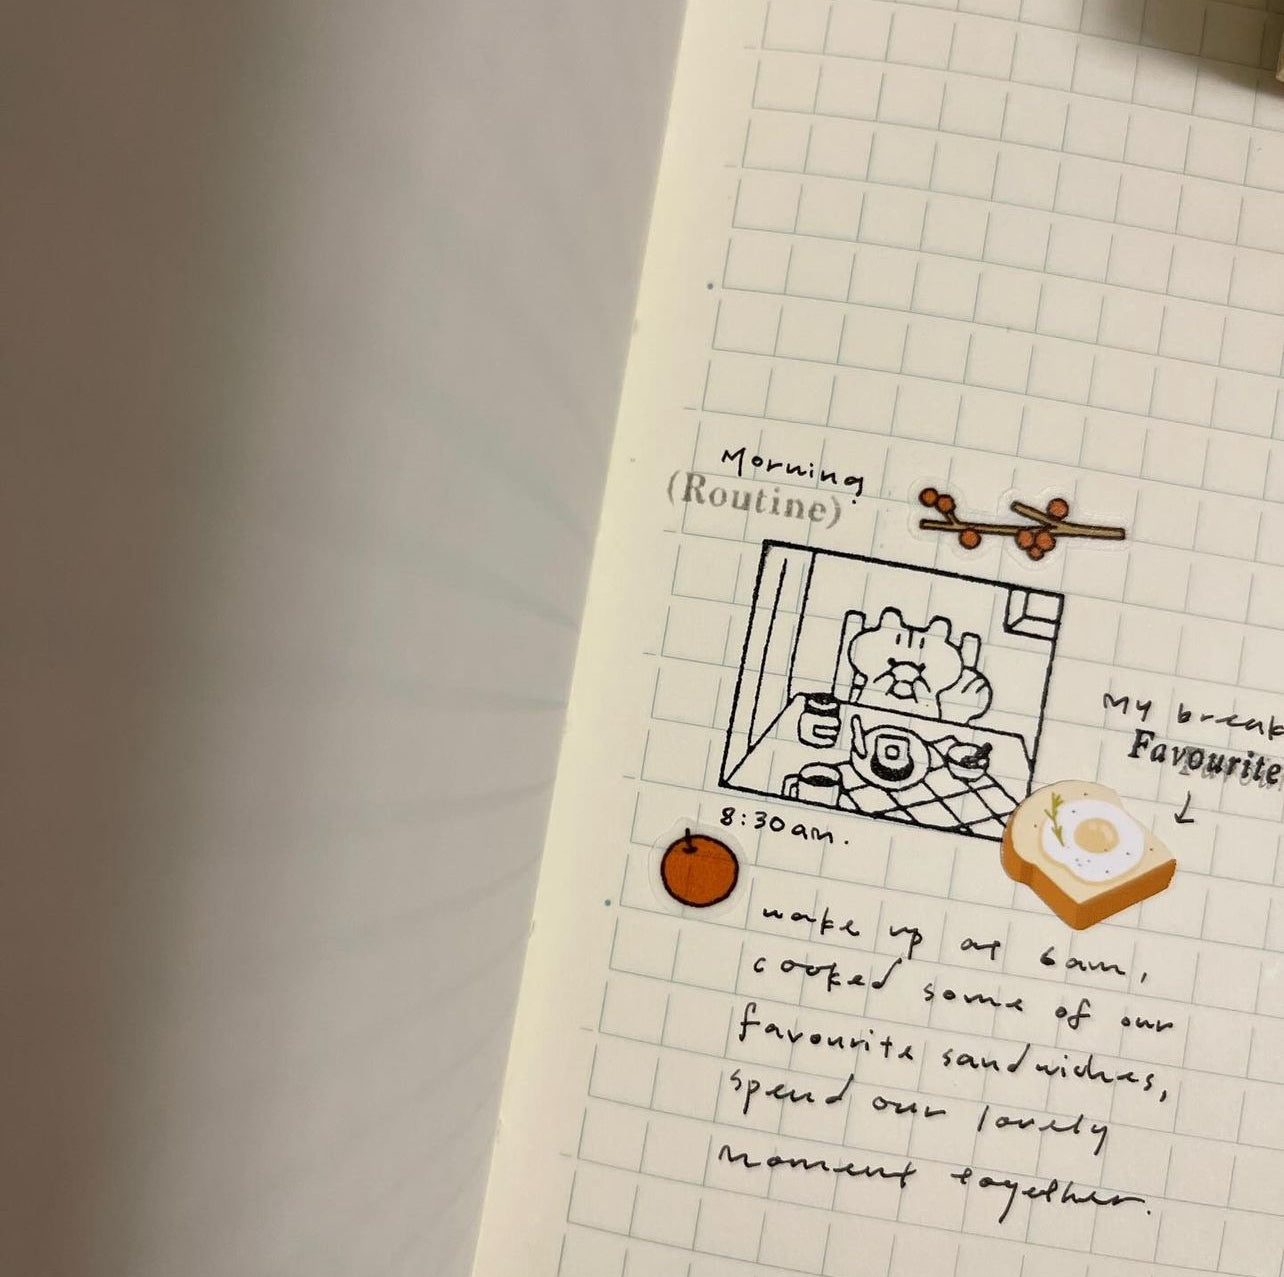 Morning
(Routine)
My break
Favourite
8:30am.
wake up at 6am,
cooked some of our
favourite sandwiches,
spend our lovely
moment together.